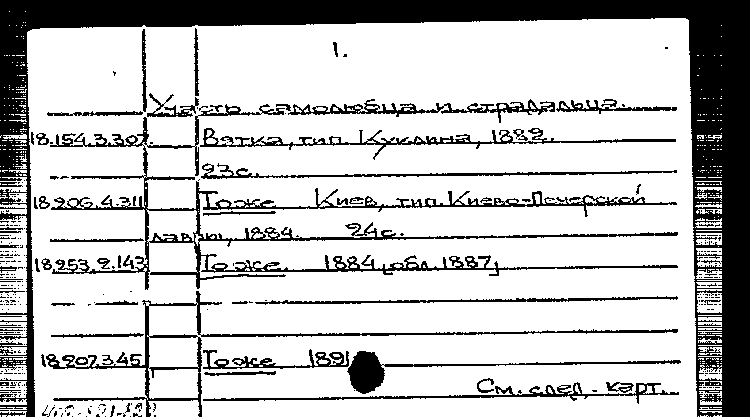 1.
Участь самолюбца и страдальца.
18.154.3.307. Вятка, тип. Куклина, 1882.
23с.
18.206.4.311 То же Киев, тип. Киево-Печерской
лавры, 1884. 24с.
18.253.2.143 То же. 1884 [обл. 1887]
18.207.3.45 То же 1891
См. след. карт.